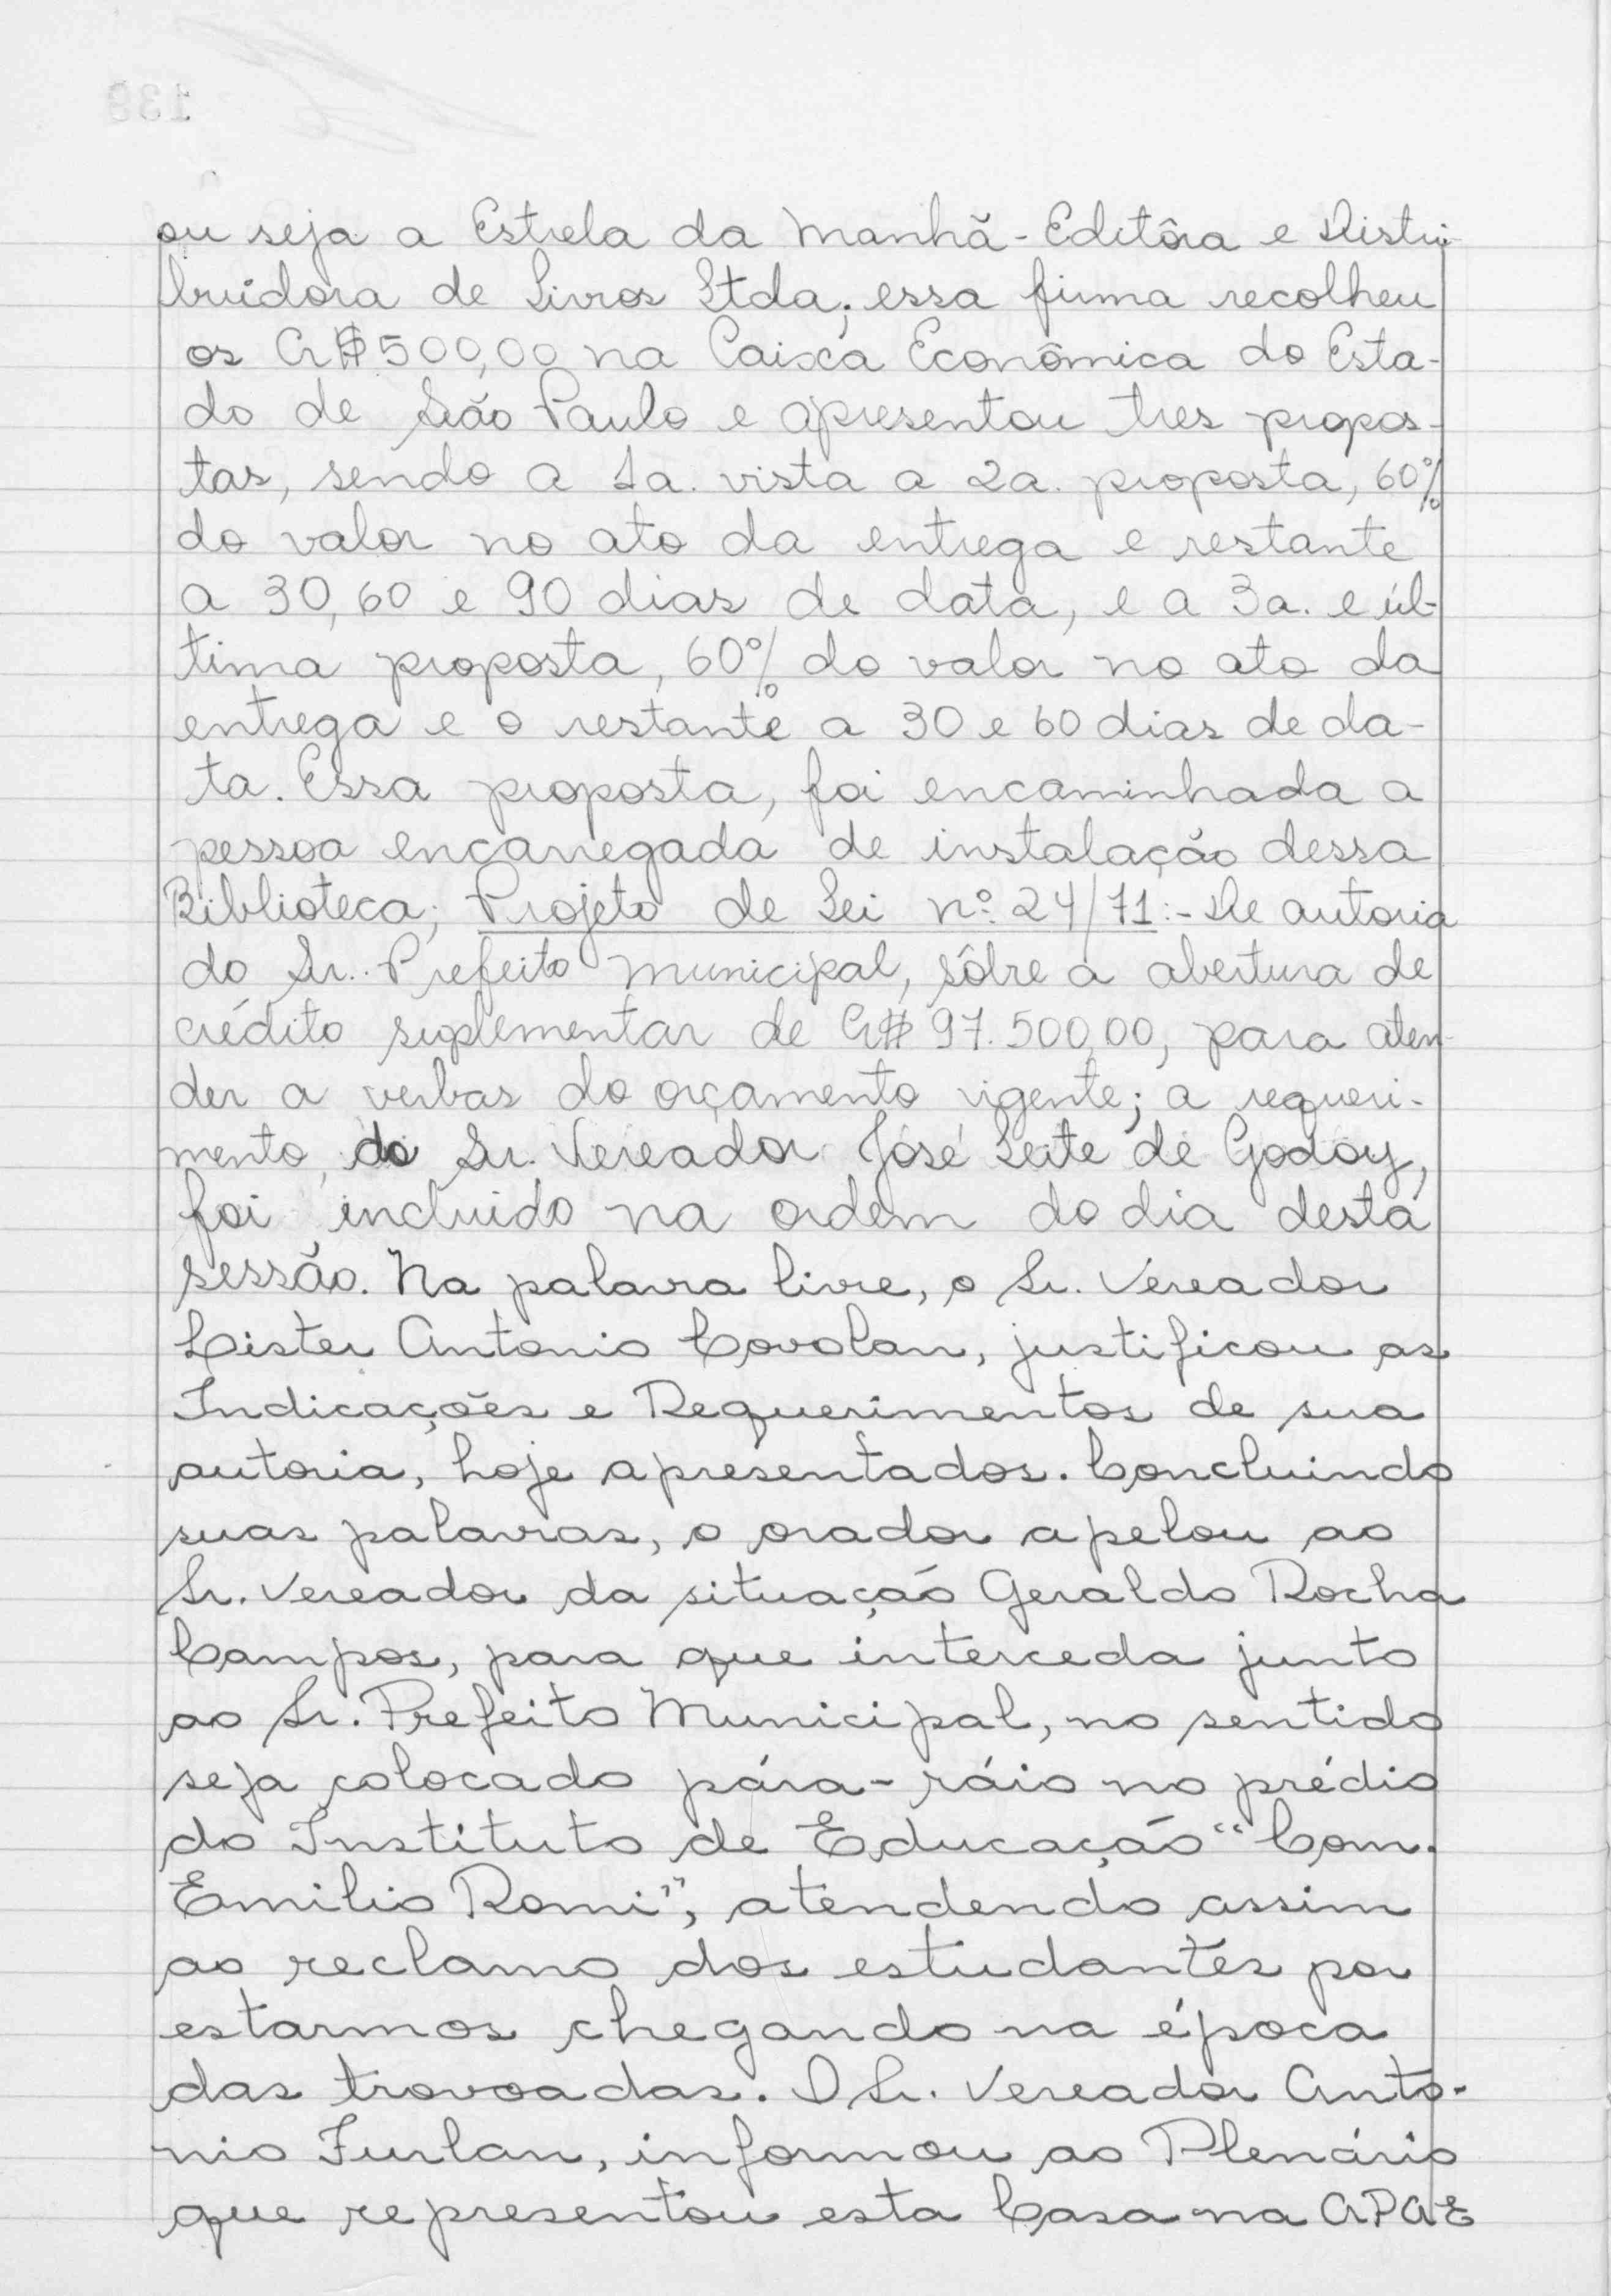 ou seja a Estrela da Manhã - Editôra e Distri-
buidora de Livros Ltda; essa firma recolheu
os Cr$500,00 na Caixa Econômica do Esta-
do de São Paulo e apresentou tres propos-
tas, sendo a 1a. vista a 2a. proposta, 60%
do valor no ato da entrega e restante
a 30, 60 e 90 dias de data, e a 3a. e úl-
tima proposta, 60% do valor no ato da
entrega e o restante a 30 e 60 dias de da-
ta. Essa proposta, foi encaminhada a
pessoa encarregada de instalação dessa
Biblioteca; Projeto de Lei nº 24/71:- De autoria
do Sr. Prefeito Municipal, sôbre a abertura de
crédito suplementar de Cr$ 97.500,00, para aten-
der a verbas do orçamento vigente; a requeri-
mento, do Sr. Vereador José Leite de Godoy,
foi incluido na ordem do dia desta
sessão. Na palavra livre, o Sr. Vereador
Lister Antonio Covolan, justificou as
Indicações e Requerimentos de sua
autoria, hoje apresentados. Concluindo
suas palavras, o orador apelou ao
Sr. Vereador da situação Geraldo Rocha
Campos, para que interceda junto
ao Sr. Prefeito Municipal, no sentido
seja colocado pára-ráio no prédio
do Instituto de Educação "Com.
Emilio Romi", atendendo assim
ao reclamo dos estudantes por
estarmos chegando na época
das trovoadas. O Sr. Vereador Anto-
nio Furlan, informou ao Plenário
que representou esta Casa na APAE